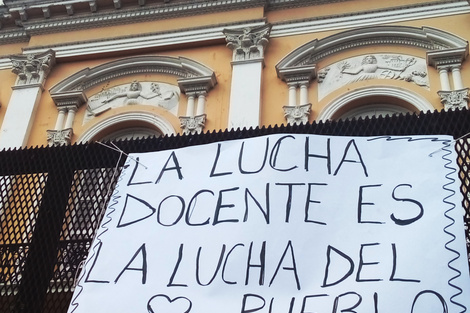 LA LUCHA
DOCENTE ES
LA LUCHA DEL
PUEBLO